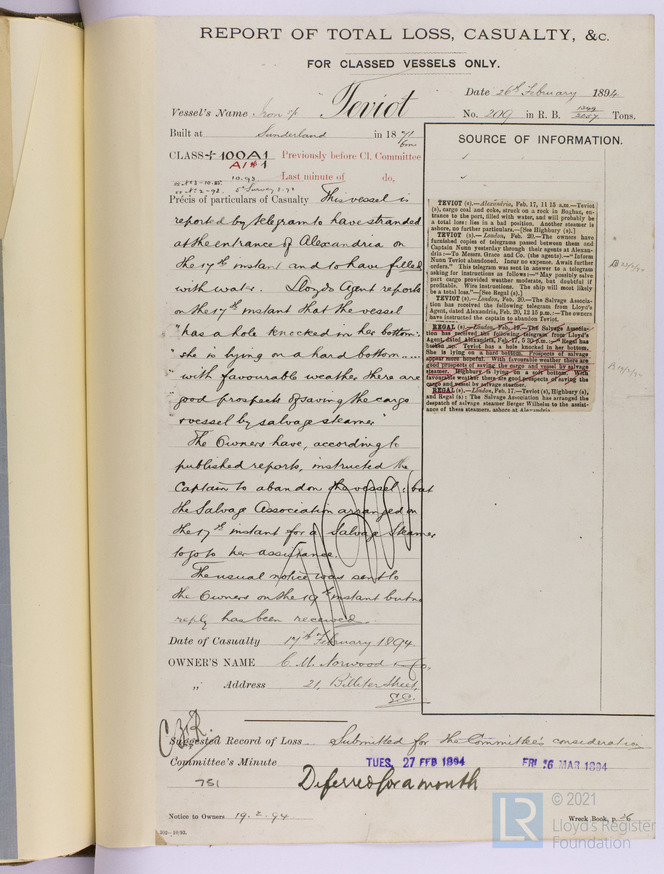 REPORT OF TOTAL LOSS, CASUALTY, &c.
FOR CLASSED VESSELS ONLY.
Date 26th February 1894
Vessel's Name Iron Teviot
No. 209 in R. B. Tons.
Built at Sunderland in 1871
6mo
CLASS + 100A1 Previously before Cl. Committee
A1*1
10.93 Last minute of do,
Précis of particulars of Casualty This vessel is
reported by telegram to have stranded
at the entrance of Alexandria on
the 17th instant and to have filled
with water. Lloyds Agent reports
on the 17th instant that the vessel
"has a hole knocked in her bottom:
"she is lying on a hard bottom.....
"with favourable weather there are
"good prospects of saving the cargo
"& vessel by salvage steamer"
The Owners have, according to
published reports, instructed the
Captain to abandon the vessel: but
the Salvage Association arranged on
the 17th instant for a Salvage Steamer
to go to her assistance.
The usual notice was sent to
the Owners on the 19th instant but no
reply has been received.
SOURCE OF INFORMATION.
TEVIOT (s).—Alexandria, Feb. 17, 11 15 a.m.—Teviot
(s), cargo coal and coke, struck on a rock in Boghaz, en-
trance to the port, filled with water, and will probably be
a total loss: lies in a bad position. Another steamer is
ashore, no further particulars.—[See Highbury (s).]
TEVIOT (s).—London, Feb. 20.—The owners have
furnished copies of telegrams passed between them and
Captain Nunn yesterday through their agents at Alexan-
dria:—To Messrs. Grace and Co. (the agents).—"Inform
Nunn Teviot abandoned. Incur no expense. Await further
orders." This telegram was sent in answer to a telegram
asking for instructions as follows:—"May possibly salve
part cargo provided weather moderate, but doubtful if
profitable. Wire instructions. The ship will most likely
be a total loss."—[See Regal (s).]
TEVIOT (s).—London, Feb. 20.—The Salvage Associa-
tion has received the following telegram from Lloyd's
Agent, dated Alexandria, Feb. 20, 12 15 p.m.:—The owners
have instructed the captain to abandon Teviot.
REGAL (s).—London, Feb. 19.—The Salvage Associa-
tion has received the following telegram from Lloyd's
Agent, dated Alexandria, Feb. 17, 5 30 p.m.:—"Regal has
broken up. Teviot has a hole knocked in her bottom.
She is lying on a hard bottom. Prospects of salvage
appear more hopeful. With favourable weather there are
good prospects of saving the cargo and vessel by salvage
steamer. Highbury is lying on a soft bottom. With
favourable weather there are good prospects of saving the
cargo and vessel by salvage steamer.
REGAL (s).—London, Feb. 17.—Teviot (s), Highbury (s),
and Regal (s): The Salvage Association has arranged the
despatch of salvage steamer Berger Wilhelm to the assist-
ance of these steamers, ashore at Alexandria.
Date of Casualty 17th February 1894.
OWNER'S NAME C. M. Norwood & Co,
„ Address 21, Billiter Street,
E.C.
Suggested Record of Loss Submitted for the Committee's consideration
Committee's Minute TUES. 27 FEB 1894 FRI. 16 MAR 1894
751 Deferred for a month
Notice to Owners 19.2.94
Wreck Book, p. 36
© 2021
LR Lloyd's Register
Foundation